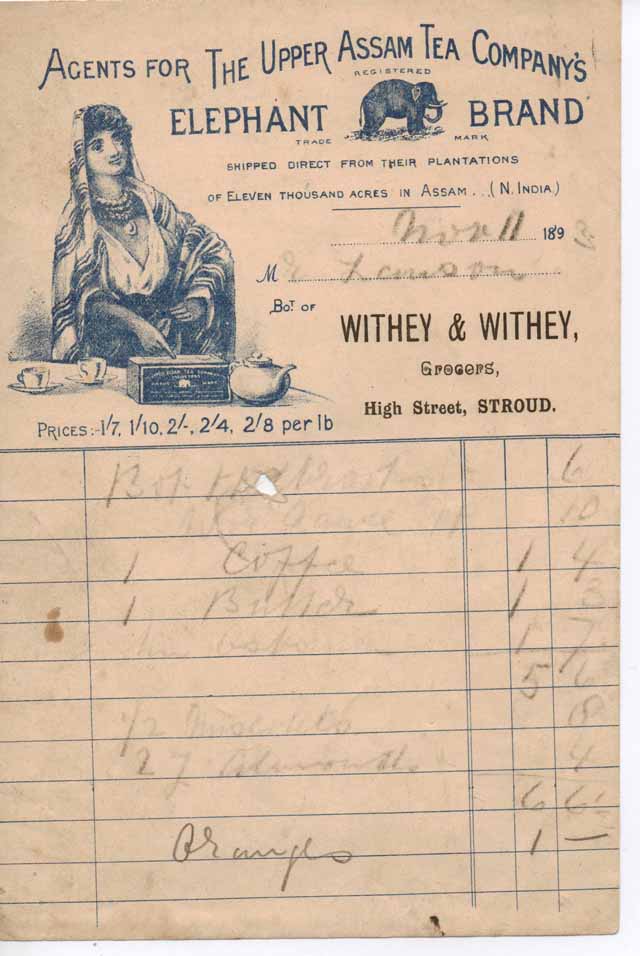 AGENTS FOR THE UPPER ASSAM TEA COMPANY'S
REGISTERED
ELEPHANT BRAND
TRADE MARK
SHIPPED DIRECT FROM THEIR PLANTATIONS
OF ELEVEN THOUSAND ACRES IN ASSAM... (N. INDIA)
Nov 11 1893
M
BOT OF
WITHEY & WITHEY,
Grocers,
High Street, STROUD.
UPPER ASSAM TEA COMPANY
PRICES:-1/7, 1/10, 2/-, 2/4, 2/8 per lb
Bot 6
10
1 Coffee 1 4
1 Butter 1 3
1 7
5 6
1/2 8
2 4
6 6
Oranges 1 —